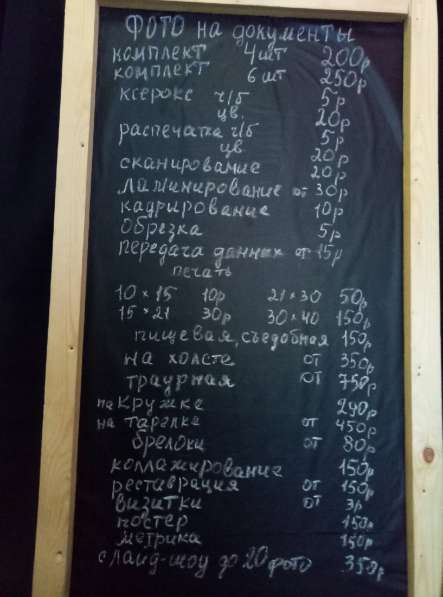 ФОТО на документы
комплект 4 шт 200р
комплект 6 шт 250р
ксерокс ч/б 5р
цв. 20р
распечатка ч/б 5р
цв. 20р
сканирование 20р
ламинирование от 30р
кадрирование 10р
обрезка 5р
передача данных от 15р
печать
10×15 10р 21×30 50р
15×21 30р 30×40 150р
пищевая, съедобная 150р
на холсте от 350р
траурная от 750р
на кружке 290р
на тарелке от 450р
брелоки от 80р
коллажирование 150р
реставрация от 150р
визитки от 3р
постер 150р
метрика 150р
слайд-шоу до 20 фото 350р